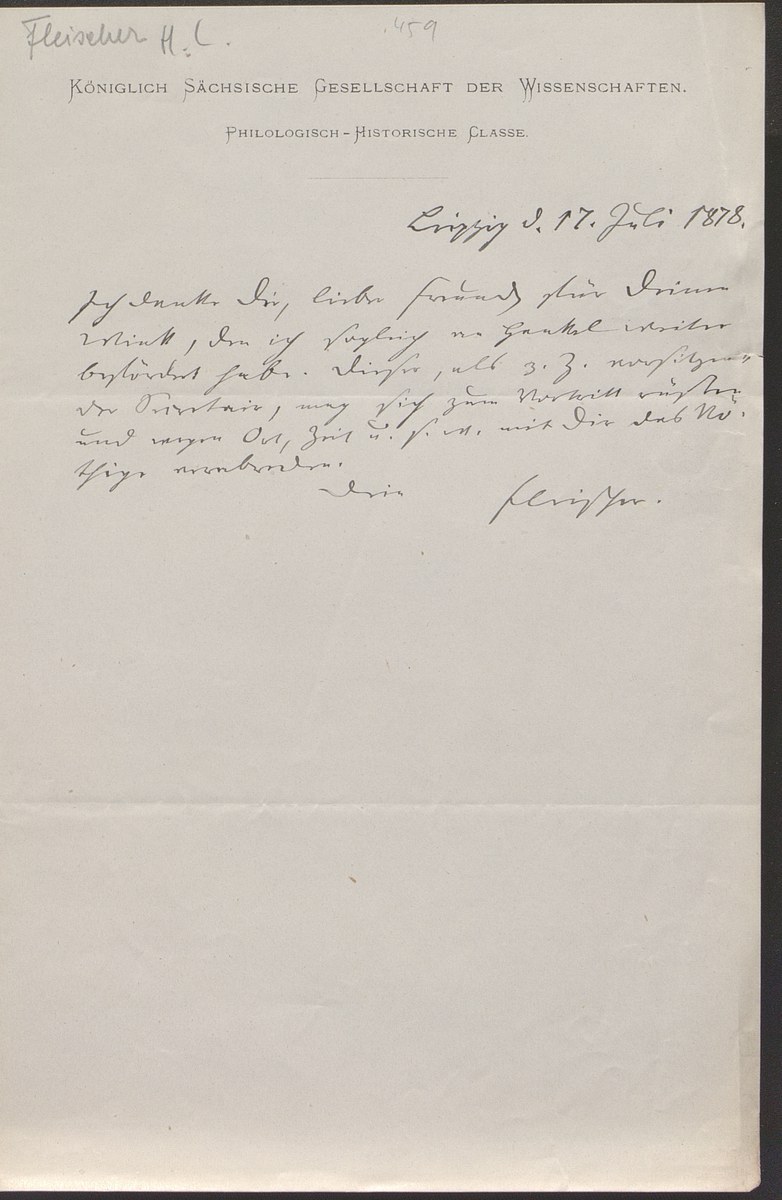 Fleischer H. L. 459
KÖNIGLICH SÄCHSISCHE GESELLSCHAFT DER WISSENSCHAFTEN.
PHILOLOGISCH-HISTORISCHE CLASSE.
Leipzig d. 17. Juli 1878.
Ich danke Dir, lieber Freund, für Deinen
Wink, den ich sogleich an Hankel weiter
befördert habe. Dieser, als z. Z. vorsitzen-
der Secretair, mag sich zum Vortritt rüsten
und wegen Ort, Zeit u. s. w. mit Dir das Nö-
thige verabreden.
Dein Fleischer.